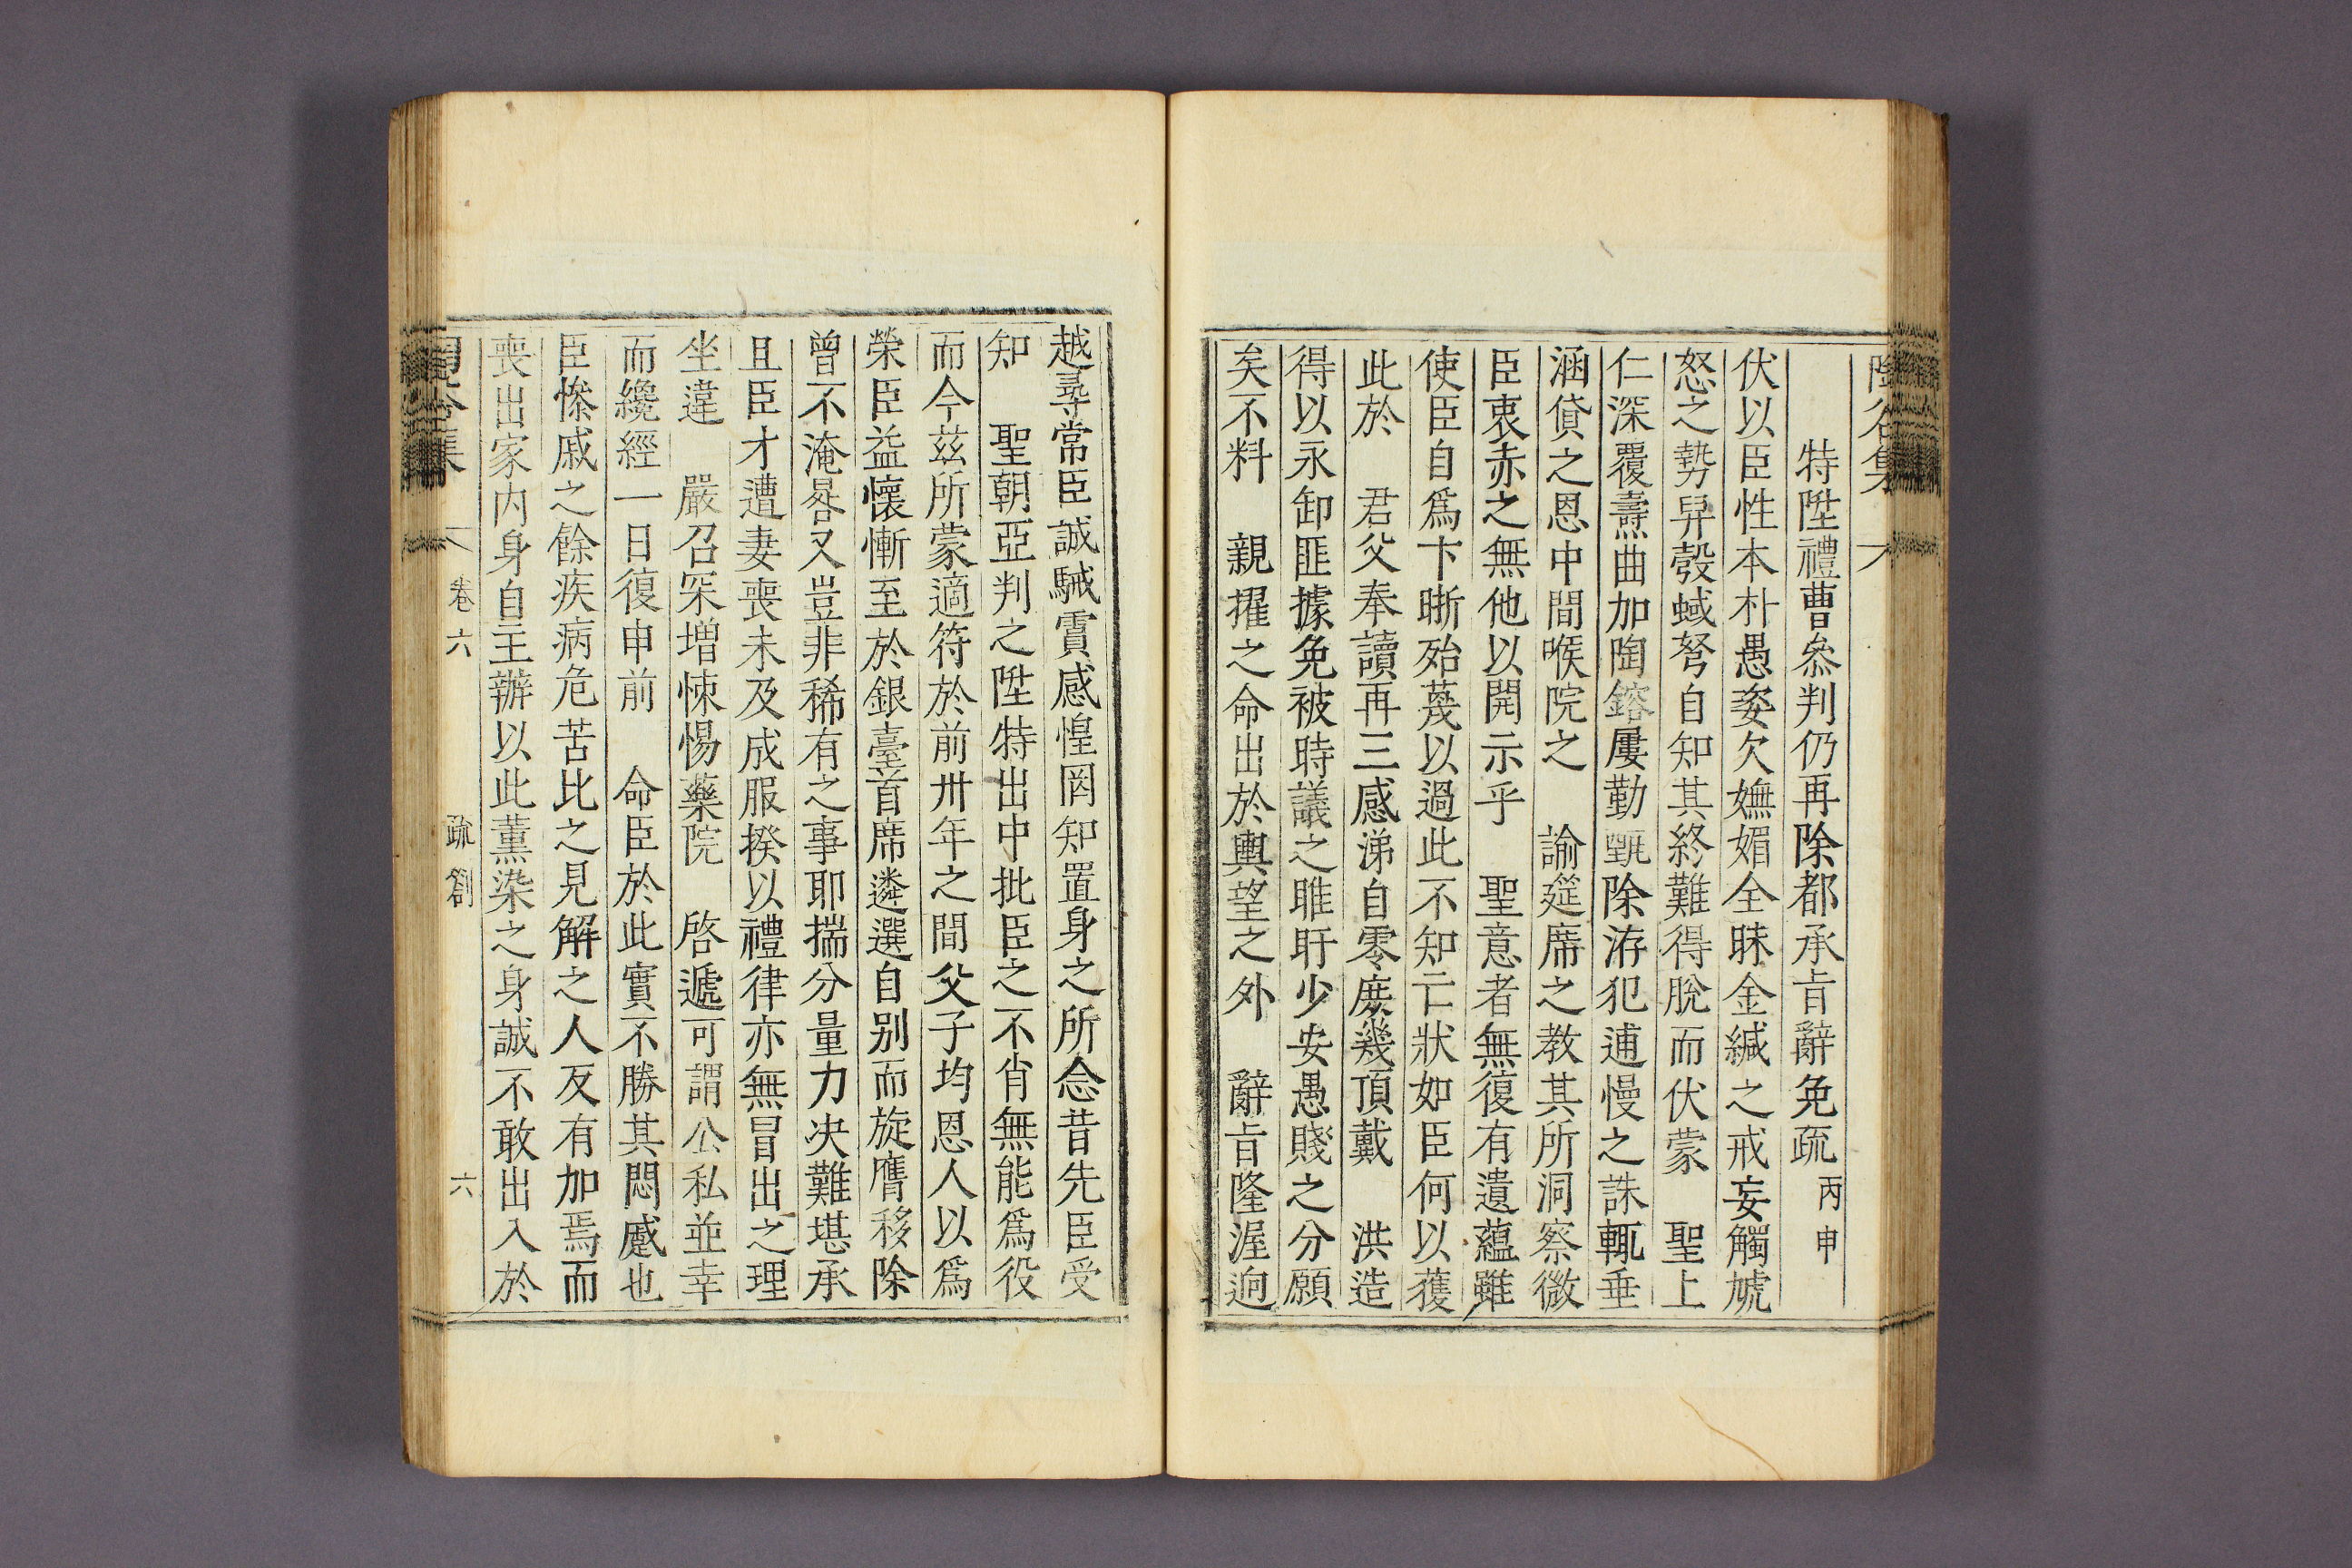 特陞禮曹叅判仍再除都承旨辭免疏 丙申
伏以臣性本朴愚姿欠嫵媚全昧金緘之戒妄觸虓
怒之勢羿彀蜮弩自知其終難得脫而伏蒙 聖上
仁深覆燾曲加陶鎔屢勤甄除洊犯逋慢之誅輒垂
涵貸之恩中間喉院之 諭筵席之教其所洞察微
臣衷赤之無他以開示乎 聖意者無復有遺蘊雖
使臣自爲卞晣殆蔑以過此不知亡狀如臣何以獲
此於 君父奉讀再三感涕自零庶幾頂戴 洪造
得以永卸匪據免被時議之睢盱少安愚賤之分願
矣不料 親擢之命出於輿望之外 辭旨隆渥逈
越尋常臣誠駴霣感惶罔知置身之所念昔先臣受
知 聖朝亞判之陞特出中批臣之不肖無能爲役
而今茲所蒙適符於前卅年之間父子均恩人以爲
榮臣益懷慚至於銀臺首席遴選自别而旋膺移除
曾不淹晷又豈非稀有之事耶揣分量力决難堪承
且臣才遭妻喪未及成服揆以禮律亦無冒出之理
坐違 嚴召罙增悚惕藥院 啓遞可謂公私並幸
而纔經一日復申前 命臣於此實不勝其悶蹙也
臣慘戚之餘疾病危苦比之見解之人反有加焉而
喪出家内身自主辦以此薰染之身誠不敢出入於
卷六 疏劄 六